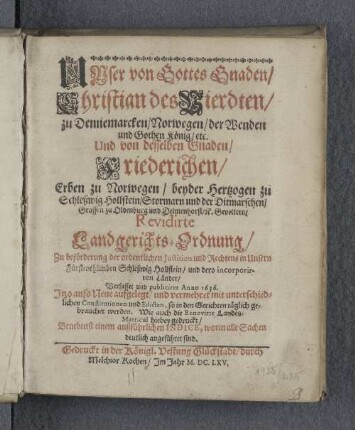 Unser von Gottes Gnaden/
Christian des Vierdten/
zu Dennemarcken/Norwegen/der Wenden
und Gothen König/etc.
Und von desselben Gnaden/
Friederichen/
Erben zu Norwegen/beyder Hertzogen zu
Schleßwig Hollstein/Stormarn und der Ditmarschen/
Graffen zu Oldenburg und Delmenhorst/
Revidirte
Landgerichts-Ordnung/
Zu beförderung der ordentlichen Justitien und Rechtens in Unsern
Fürstenthümben Schleßwig Hollstein/ und dero incorporir-
ten Länder/
Verfasset und publiciret Anno 1636.
Itzo auffs Neue auffgelegt/ und vermehret mit unterschied-
lichen Constitutionen und Edicten, so in den Gerichten täglich ge-
brauchet werden. Wie auch die Renovirte Landes-
Matricul hiebey gedruckt/
Benebenst einem außführlichen INDICE, worin alle Sachen
deutlich angeführet sind.
Gedruckt in der Königl. Vestung Glückstadt/ durch
Melchior Kochen/ Im Jahr M. DC. LXV.